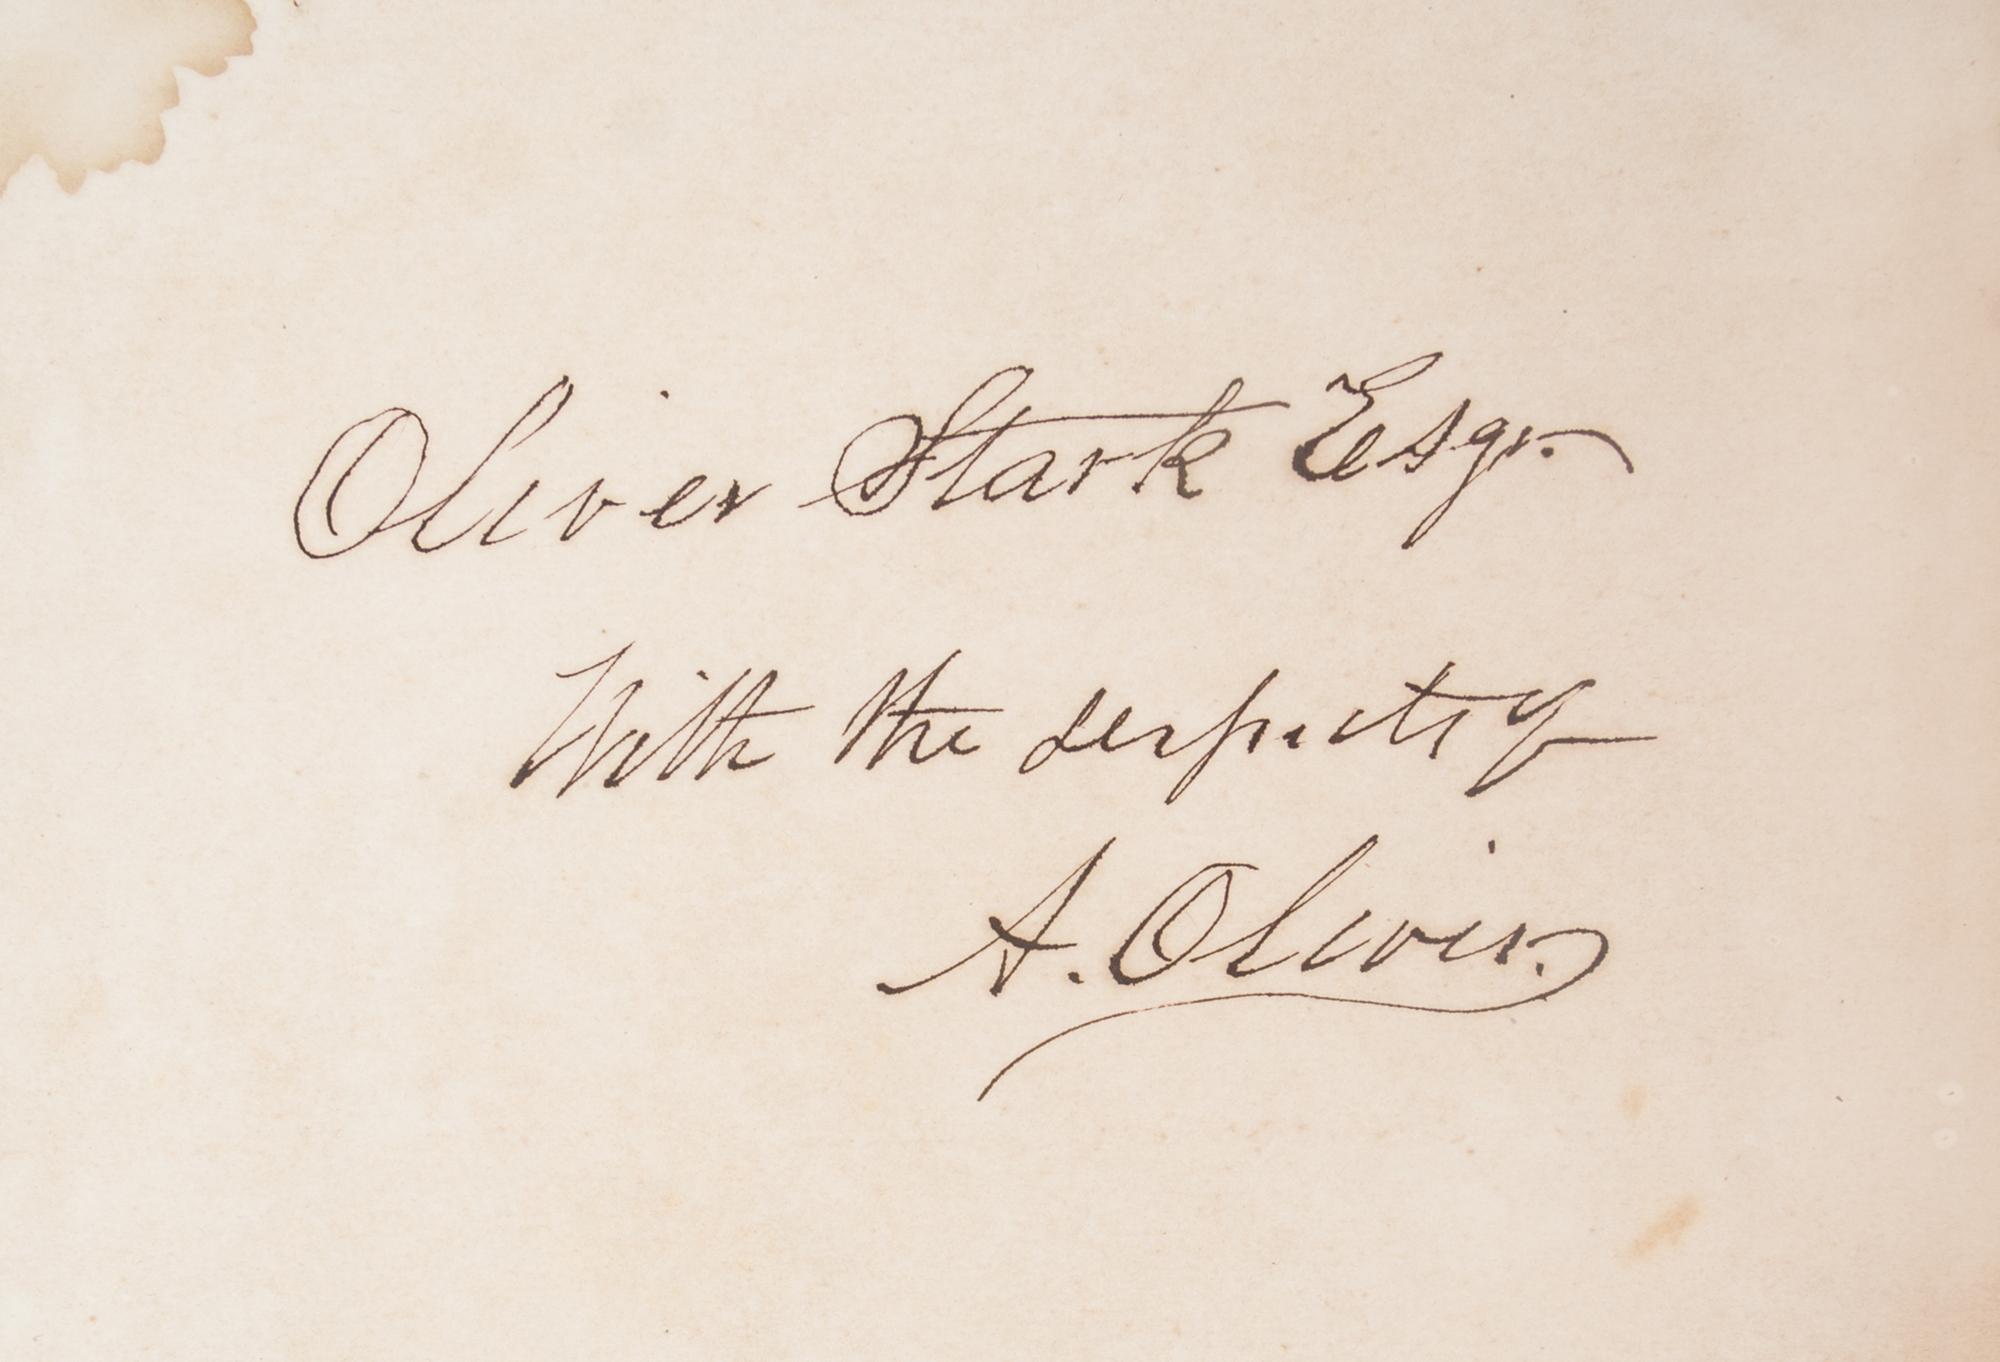 Oliver Stark Esqr.
With the respects of
A. Oliver.